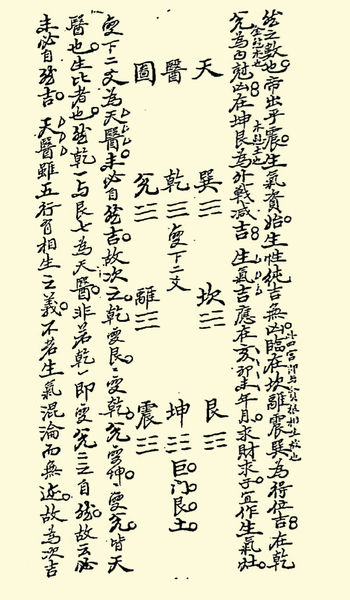 然之數也帝出乎震生氣資始生性純吉無凶臨在坎離震巽為得位吉在乾
兌為內剋凶在坤艮為外戰減吉 生氣吉應在亥卯未年月求財求子宜作生氣灶
天 巽☴ 坎☵ 艮☶
醫 乾☰變下二爻 坤☷巨門艮土
圖 兌☱ 離☲ 震☳
變下二爻為天醫未必自然吉故次之乾變艮艮變乾兌變坤坤變兌皆天
醫也生比者也然乾一與艮七為天醫非弟乾一即變兌二之自然故云必
未必自然吉 天醫雖五行有相生之義不若生氣混淪而無迹故為次吉